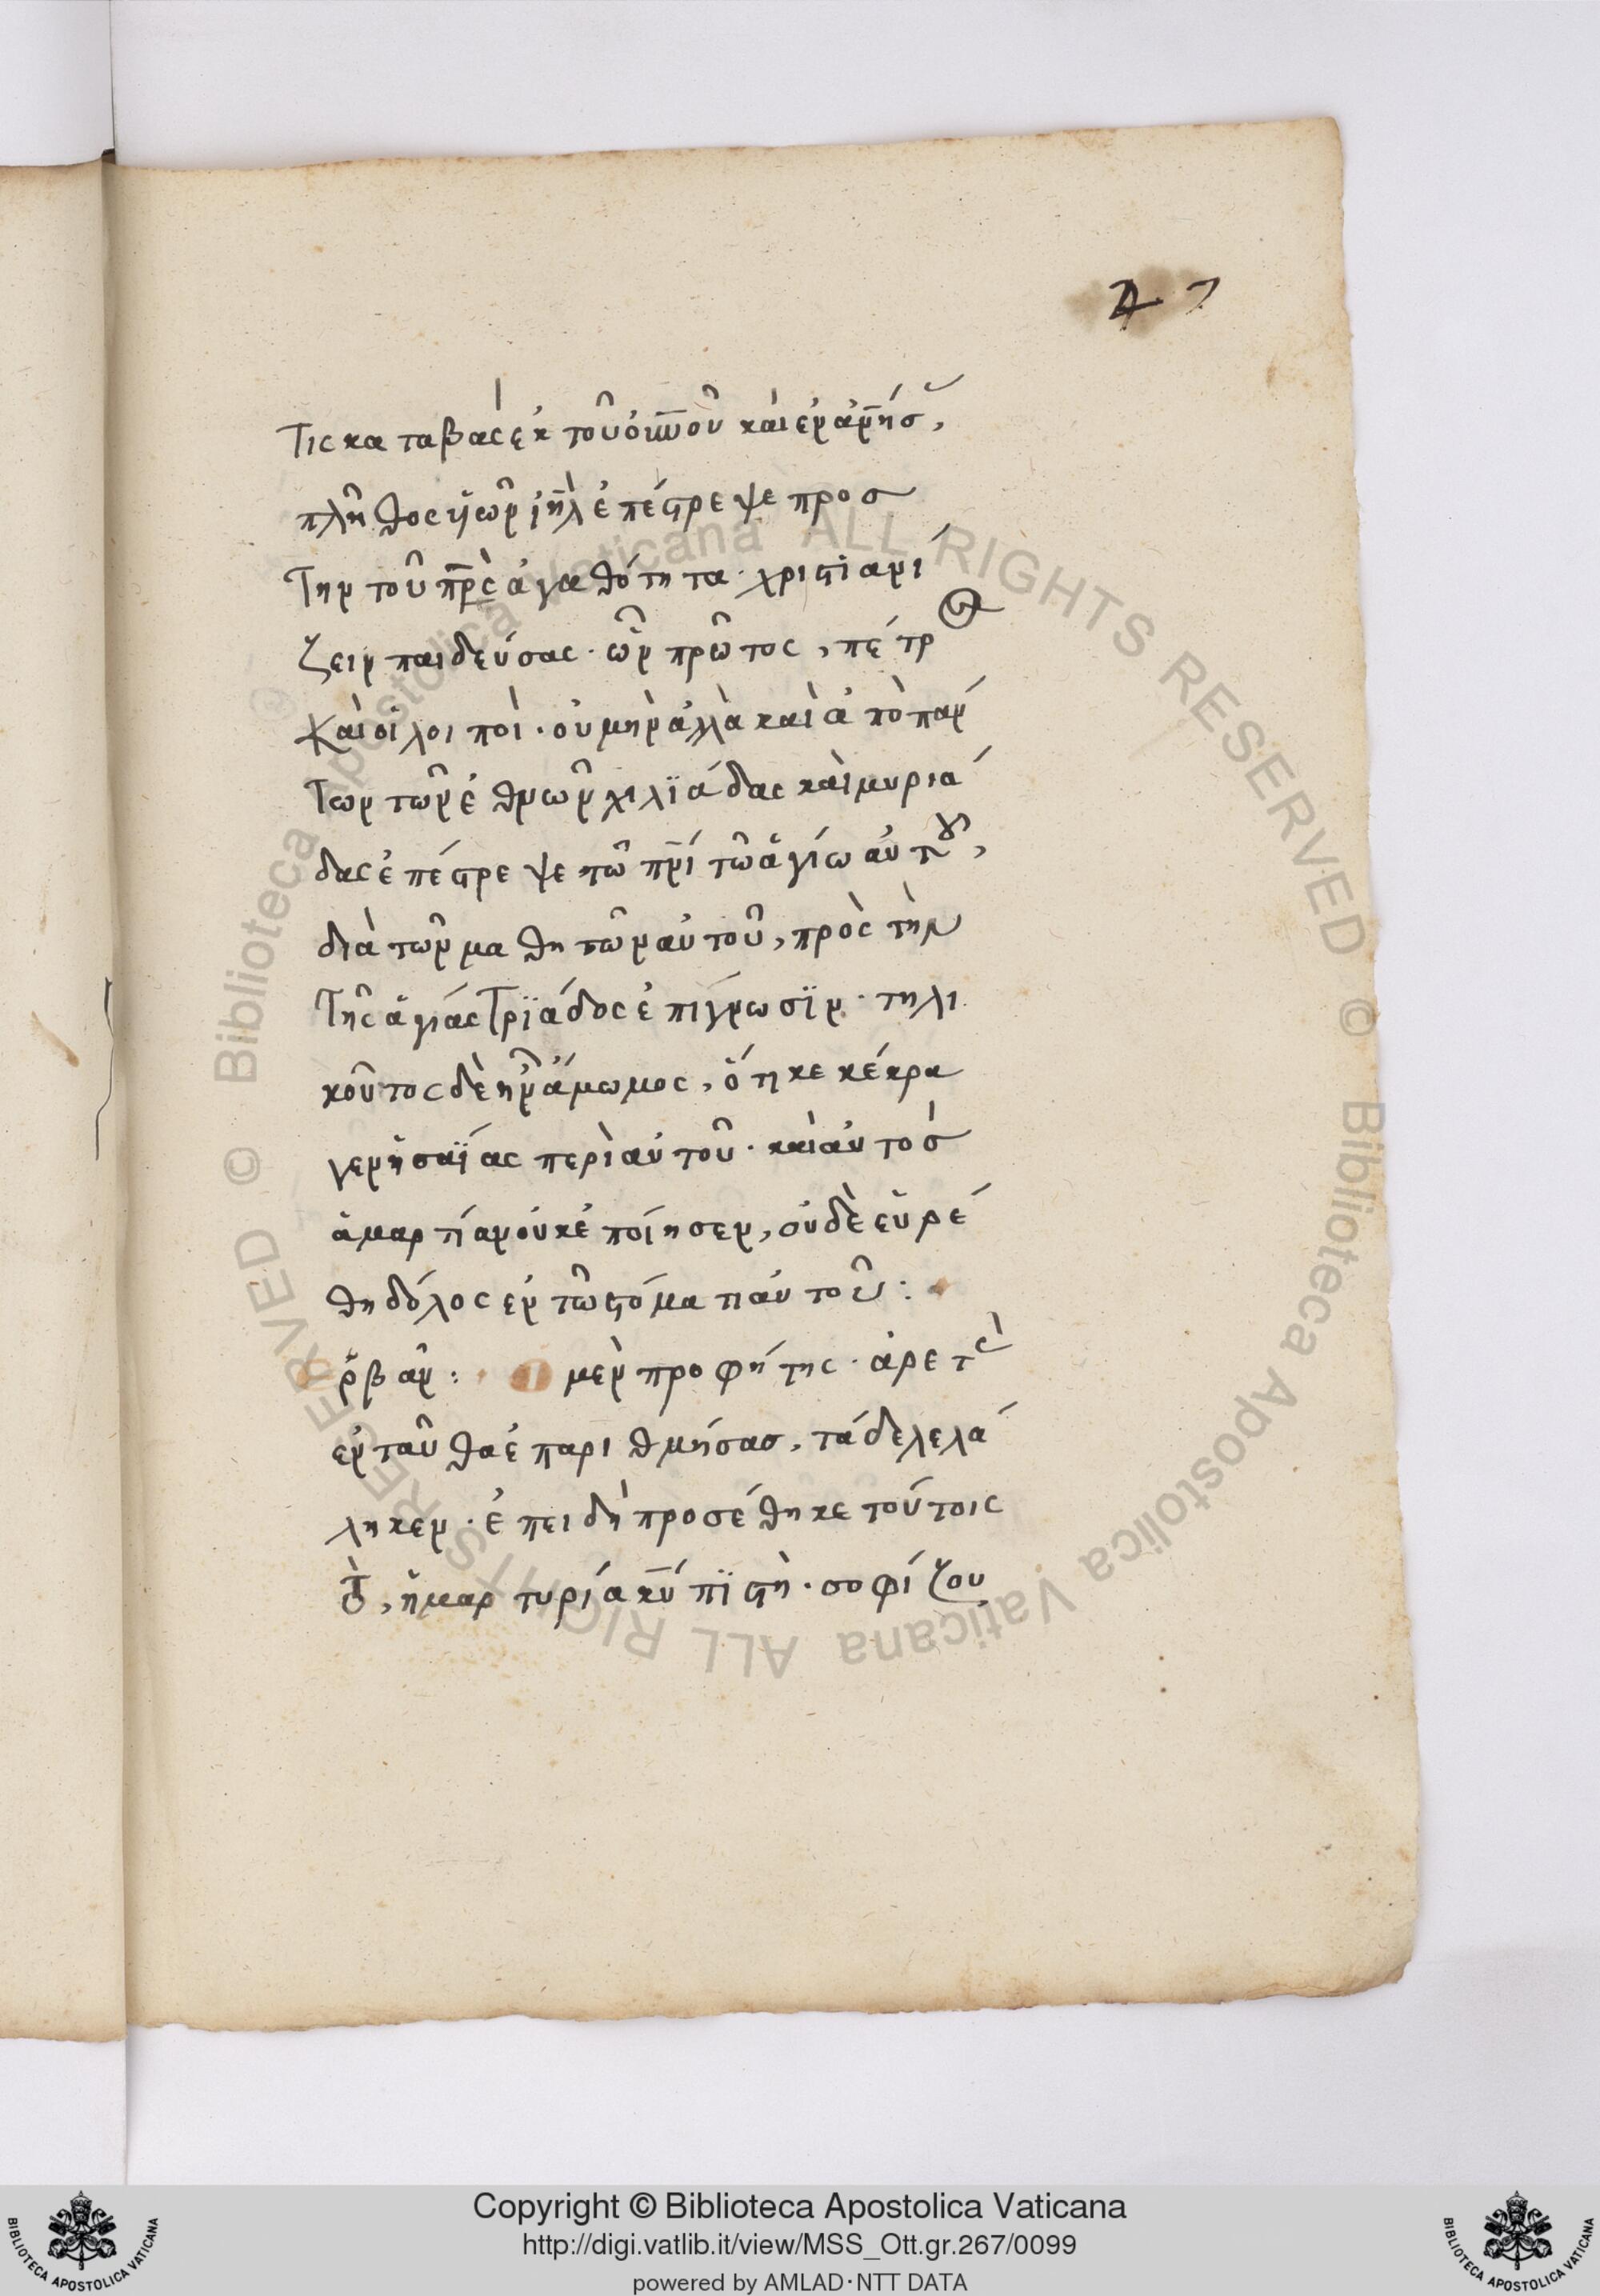 47
Τις καταβὰς ἐκ τοῦ οὐνοῦ καὶ ἐναν̅ήσ,
πλῆθος ὑῶν ιη̅λ ἐπέστρεψε προσ
Την τοῦ πρ̅ς ἀγαθότητα· χριστιανί
ζειν παιδεύσας· ὧν πρῶτος, πέτρος
Καὶ οἱ λοιποί· οὐ μὴν ἀλλὰ καὶ ἀπὸ πάν
Των τῶν ἐθνῶν χιλϊάδας καὶ μυριά
δας ἐπέστρεψε τῶ πρ̅ί τῶ ἁγίω αὐτοῦ,
διὰ τῶν μαθητῶν αὐτοῦ, πρὸς τὴν
Τῆς ἁγίας Τρϊάδος ἐπίγνωσϊν· τηλι
κοῦτος δὲ ἦν ἄμωμος, ὅτι κεκέκρα
γεν ἡσαΐας περὶ αὐτοῦ· καὶ αὐτὸσ
ἁμαρτίαν οὐκ ἐποίησεν, οὐδὲ εὑρέ
θη δόλος ἐν τῶ στόματι αὐτοῦ:
ὤβαν: μὲν προφήτης· ἀρετὰς
ἐνταῦθα ἐπαριθμήσασ, τάδε λελά
ληκεν· ἐπειδὴ προσέθηκε τούτοις
τὸ, ἡ μαρτυρία κ̅υ πϊστὴ· σοφίζου
Copyright © Biblioteca Apostolica Vaticana
http://digi.vatlib.it/view/MSS_Ott.gr.267/0099
powered by AMLAD·NTT DATA